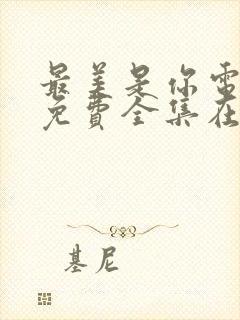 最美是你電
免費全集在
基尼